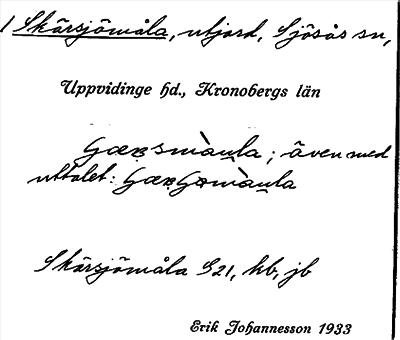 / Skärsjömåla, utjord, Sjösås sn,
Uppvidinge hd., Kronobergs län
även med
uttalet:
Skärsjömåla S21, kb, jb
Erik Johannesson 1933